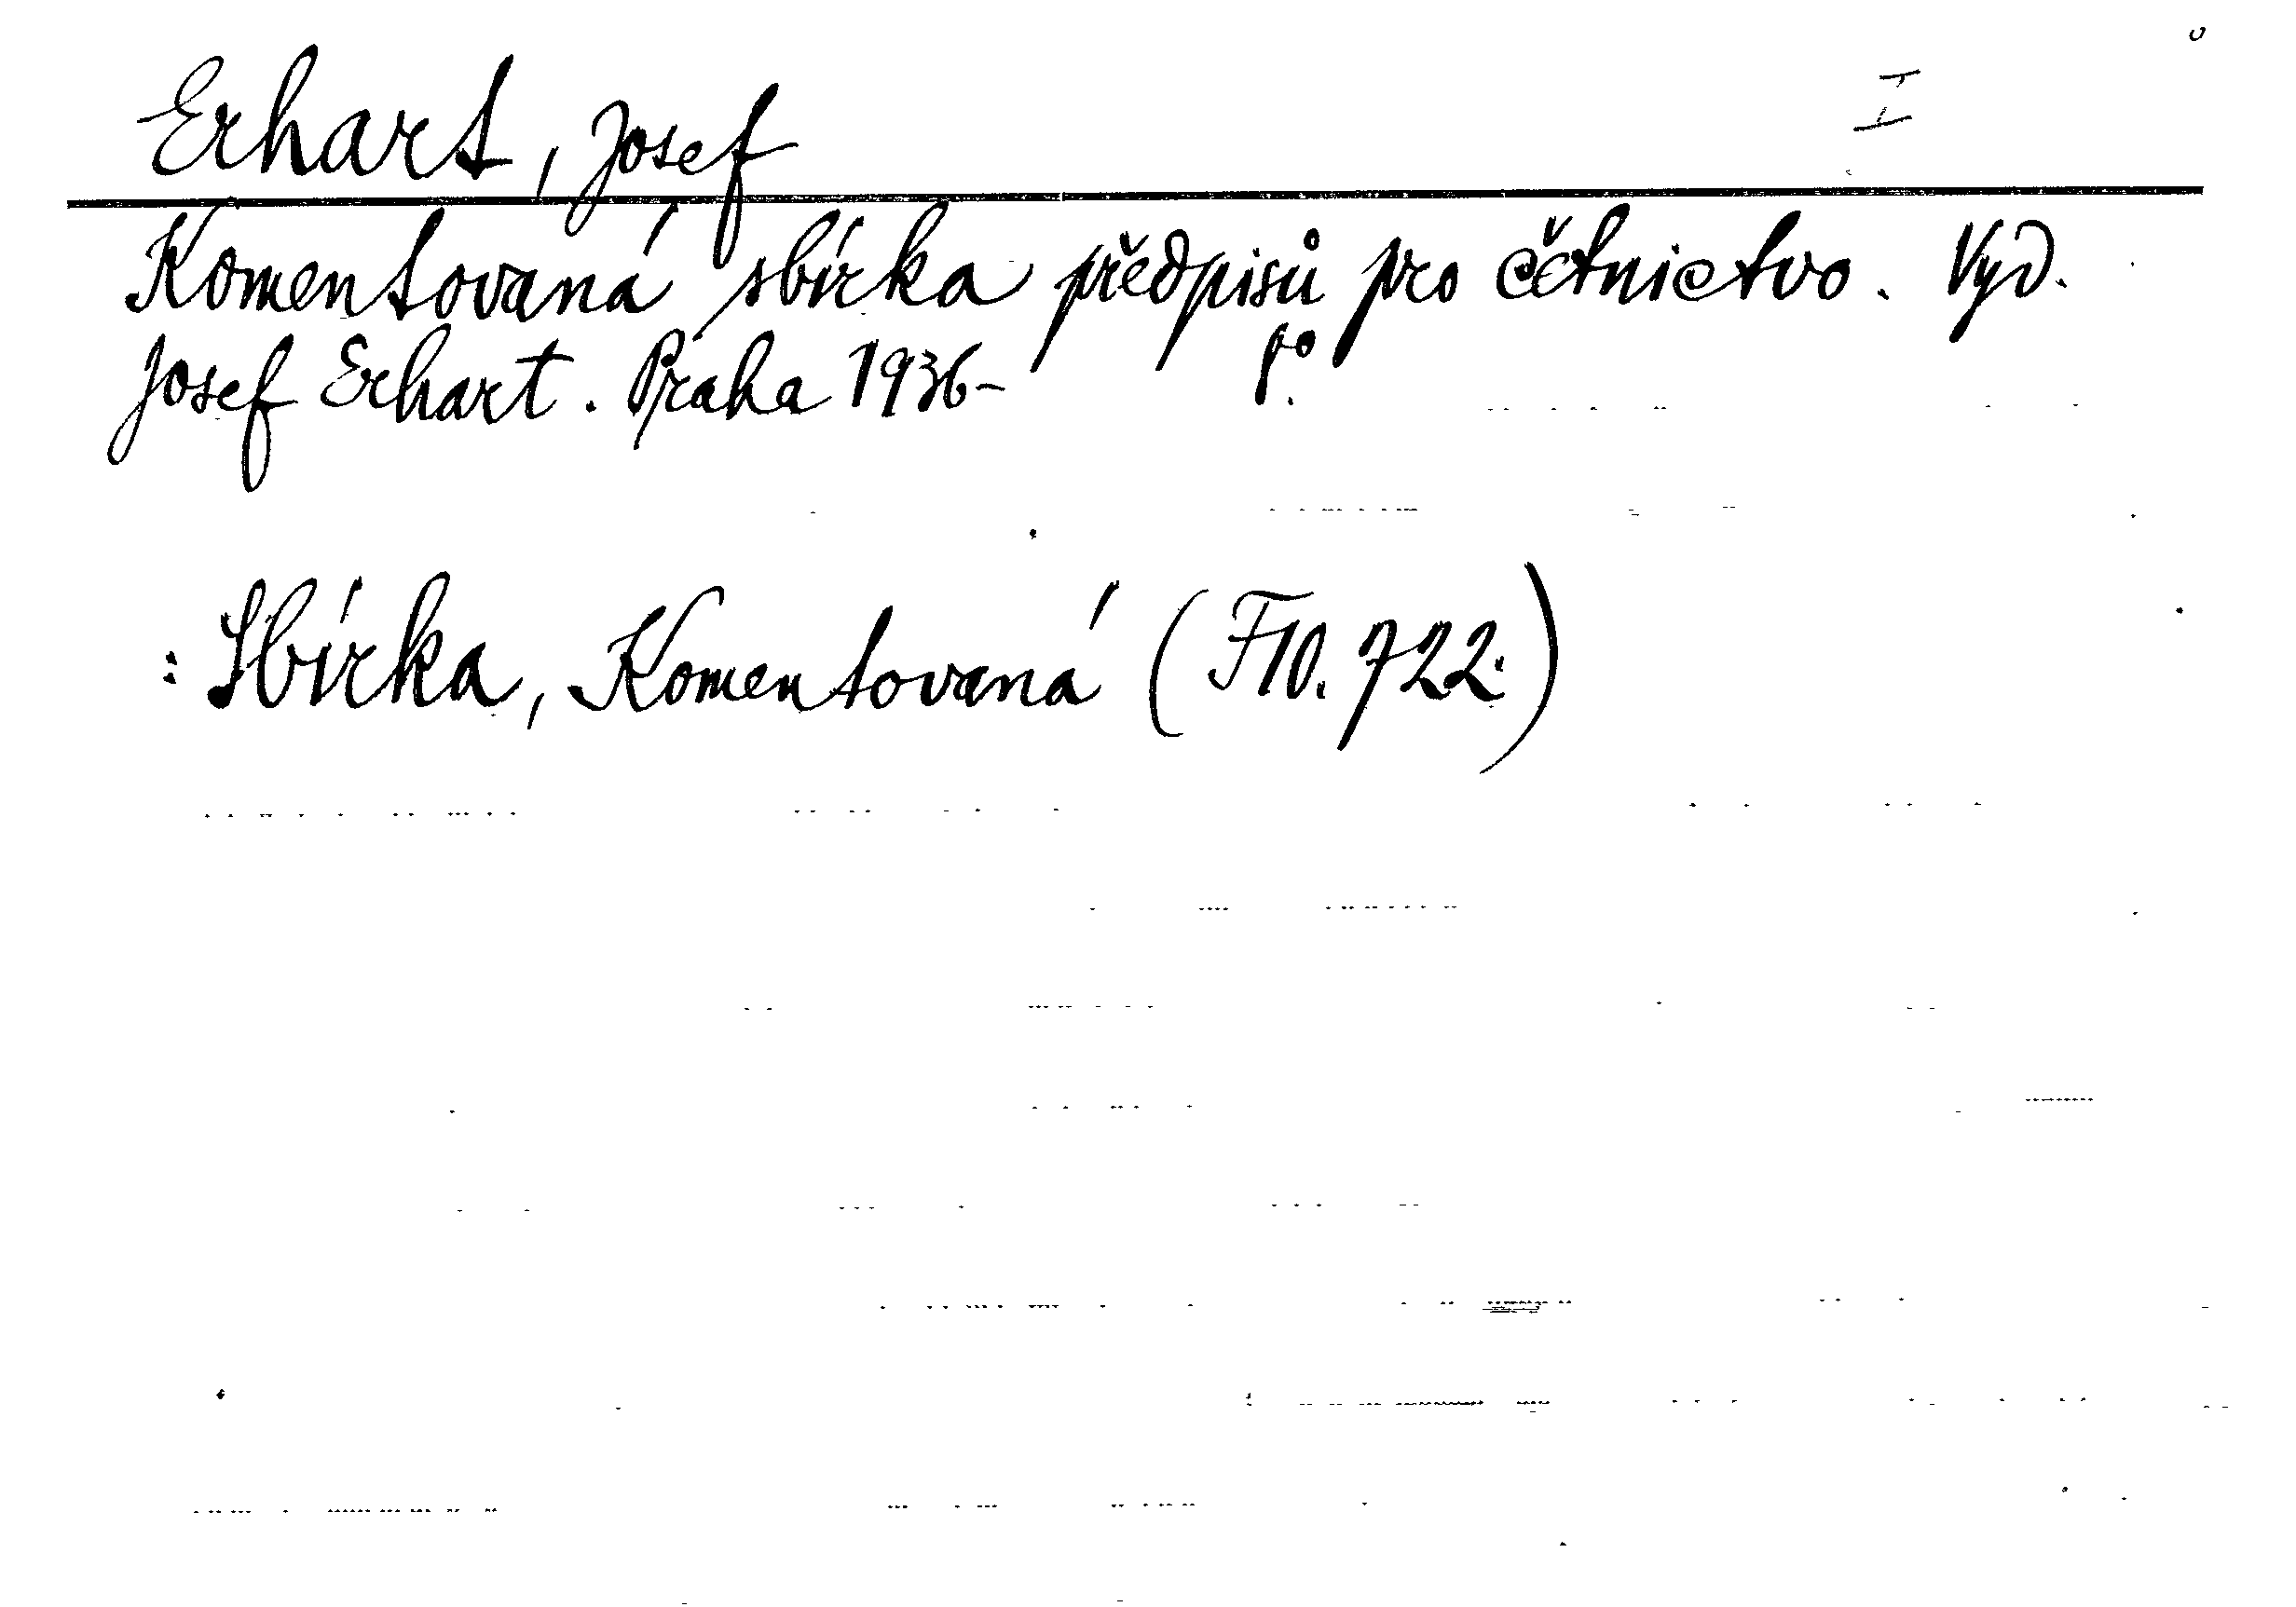 I
Erhart, Josef
Komentovaná sbírka předpisů pro četnictvo. Vyd.
Josef Erhart. Praha 1936- 8°.
: Sbírka, Komentovaná (F10.722.)